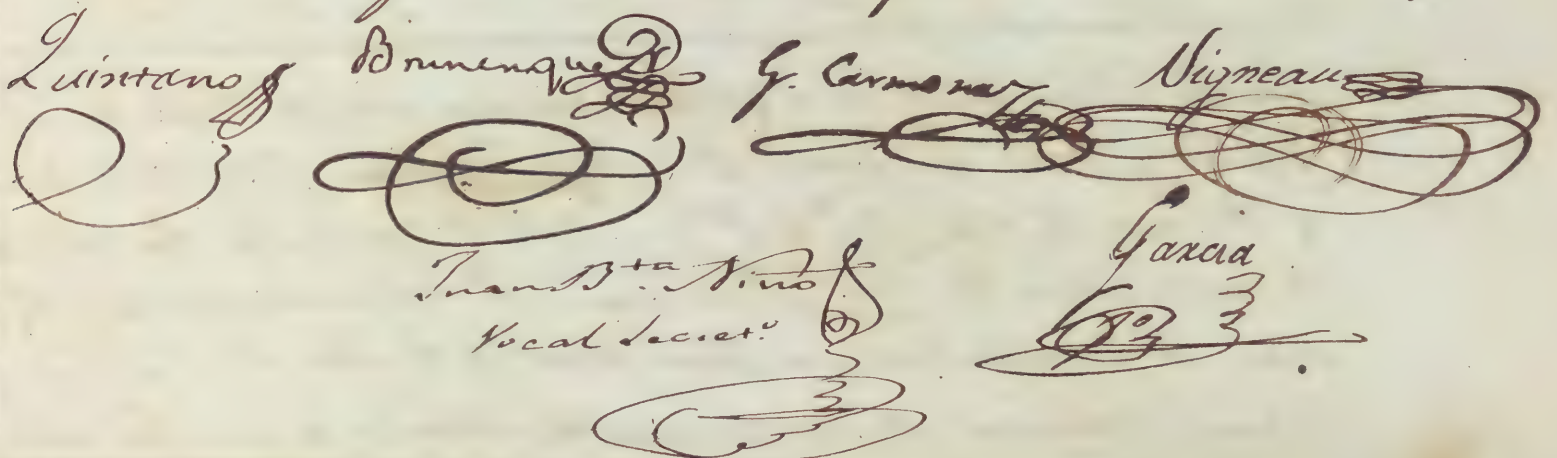 Quintano Brunenque G. Carmona Vigneau
Garcia
Juan B.ta Niño
Vocal Secret.o